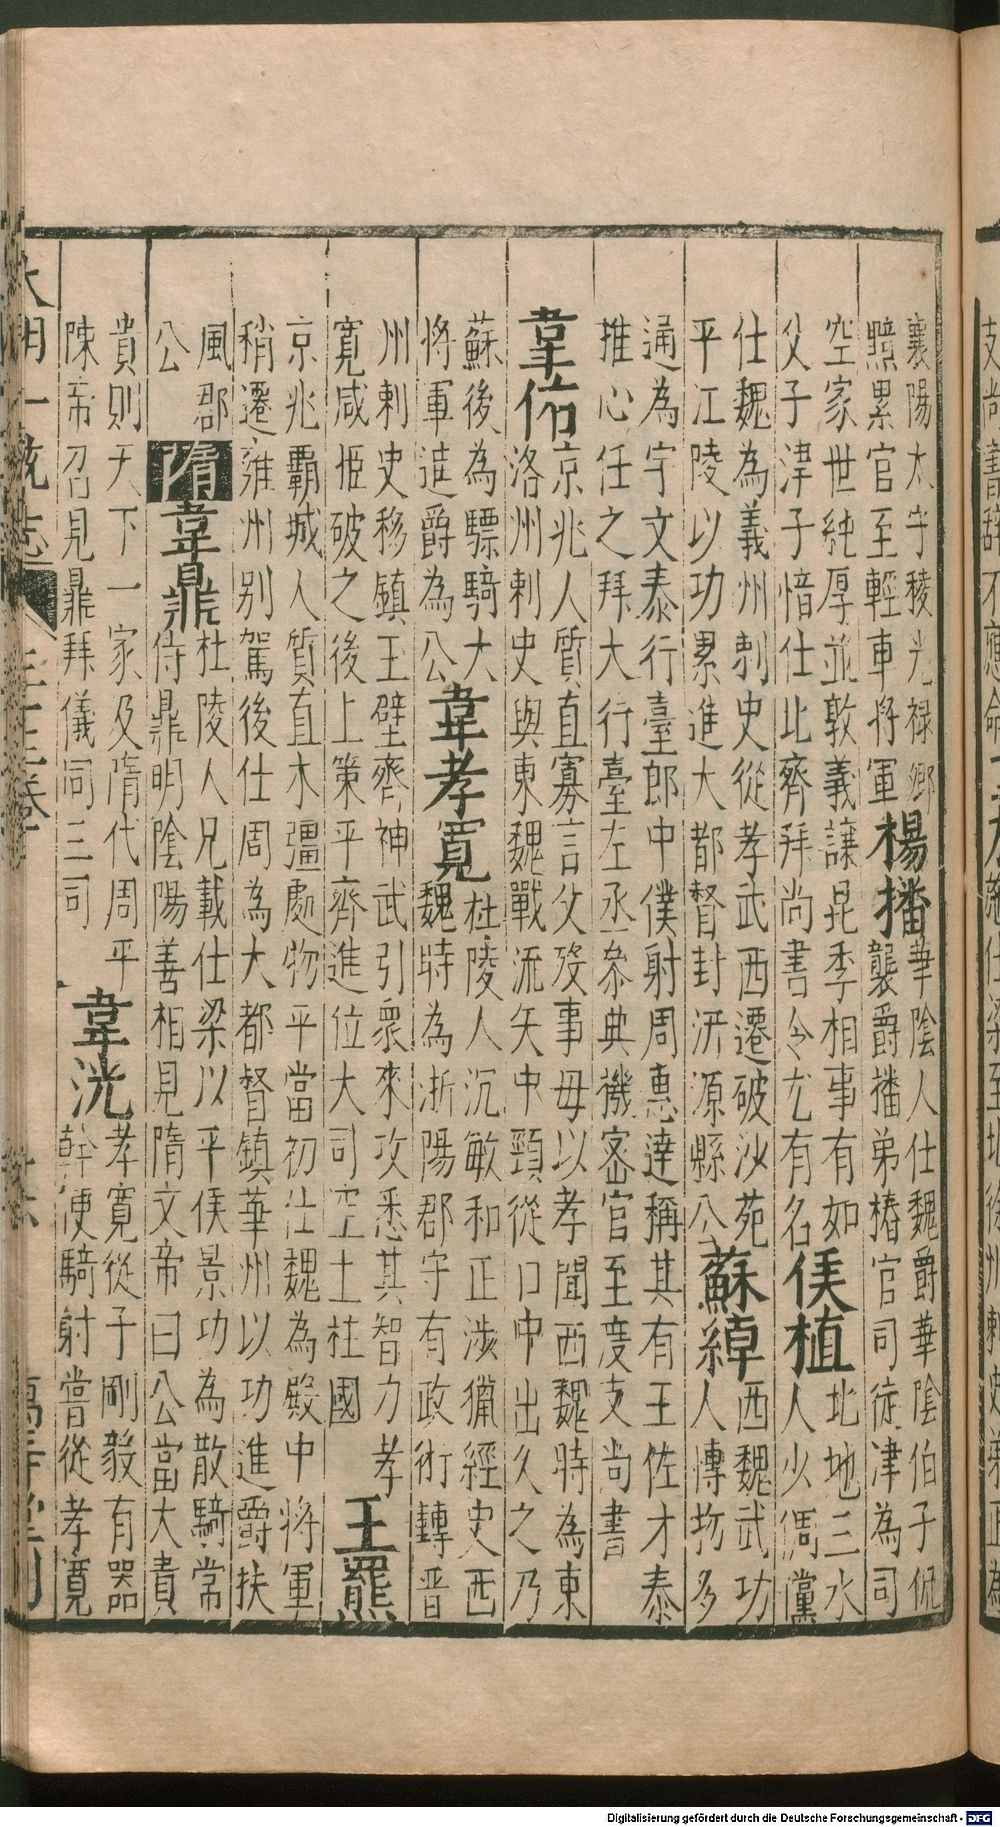 襄陽太守稜光禄鄉
黙累官至輕車將軍
楊播
華陰人仕魏爵華陰伯子侃
襲爵播弟椿官司徒津為司
空家世純厚並敦義讓昆季相事有如
父子津子愔仕北齊拜尚書令尤有名
侯植
北地三水
人少倜黨
仕魏為義州刺史從孝武西遷破沙苑
平江陵以功累進大都督封汧源縣公
蘇綽
西魏武功
人博 多
通為宇文泰行臺郎中僕射周惠達稱其有王佐才泰
推心任之拜大行臺左丞叅典機密官至度支尚書
韋佑
京兆人質直寡言父歿事母以孝聞西魏時為東
洛州刺史與東魏戰流矢中頸從口中出久之乃
蘇後為驃騎大
將軍進爵為公
韋孝寬
杜陵人沉敏和正涉獵經史西
魏時為浙陽郡守有政術轉晉
州刺史移鎮玉壁齊神武引衆來攻悉其智力孝
寬咸拒破之後上策平齊進位大司空土柱國
王羆
京兆霸城人質直木彊處物平當初仕魏為殿中將軍
稍遷雍州别駕後仕周為大都督鎮華州以功進爵扶
風郡
公
隋
韋鼎
杜陵人兄載仕梁以平侯景功為散騎常
侍鼎明陰陽善相見隋文帝曰公當大貴
貴則天下一家及隋代周平
陳帝召見鼎拜儀同三司
韋洸
孝寬從子剛毅有器
幹便騎射嘗從孝寬
大明一統志 卷 萬壽堂刊
Digitalisierung gefördert durch die Deutsche Forschungsgemeinschaft - DFG